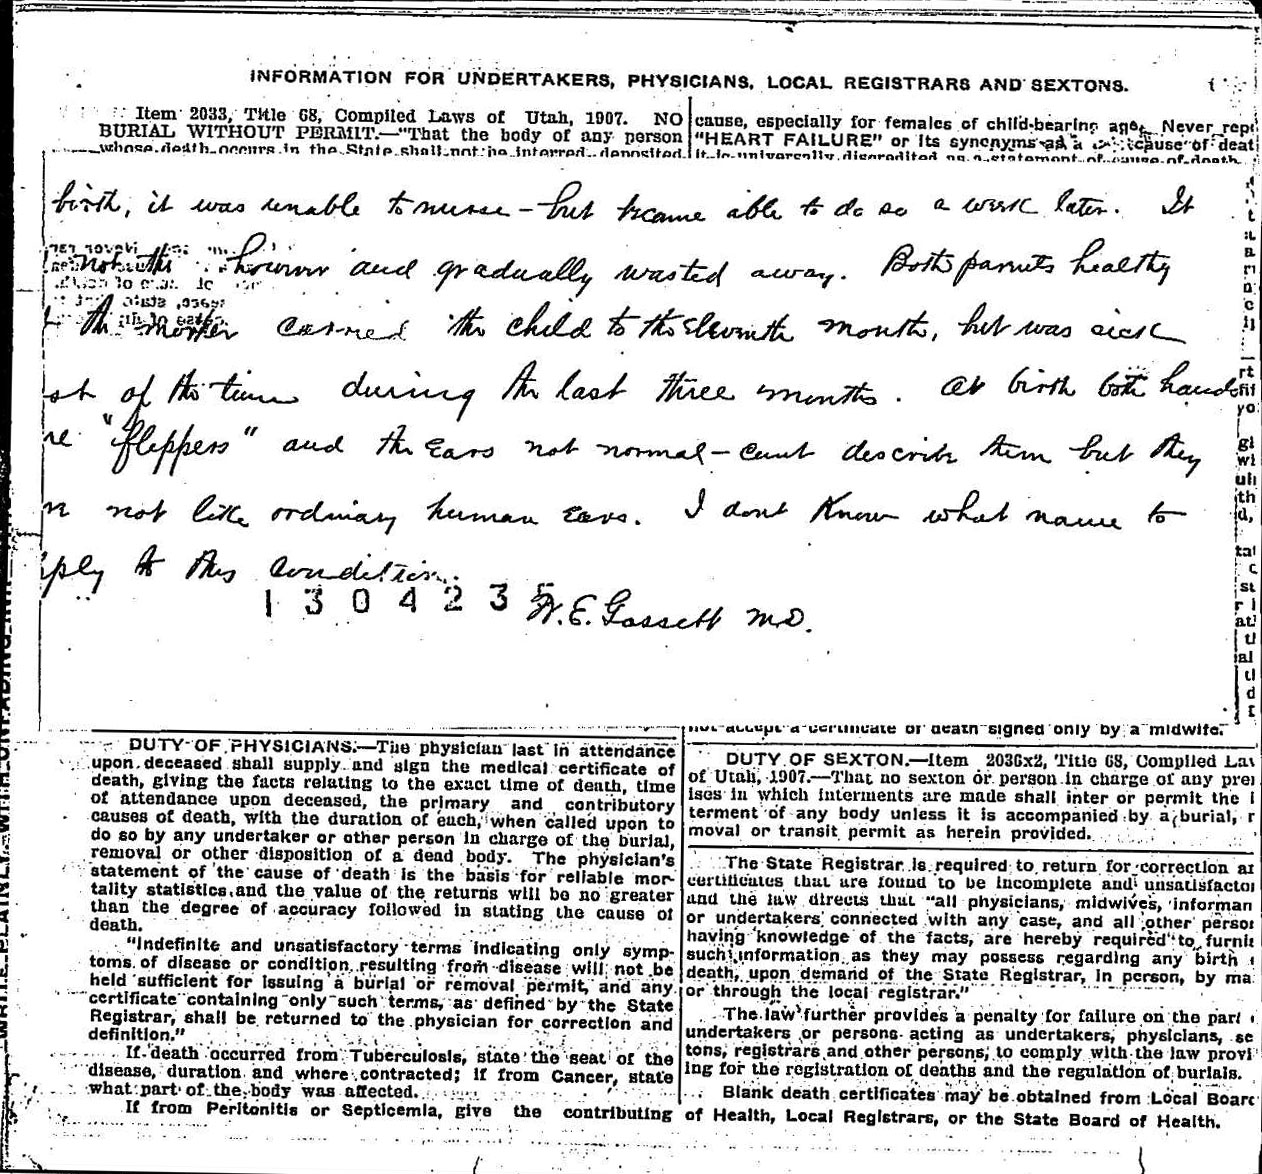 INFORMATION FOR UNDERTAKERS, PHYSICIANS, LOCAL REGISTRARS AND SEXTONS.
Item 2033, Title 68, Compiled Laws of Utah, 1907. NO
BURIAL WITHOUT PERMIT.—"That the body of any person
whose death occurs in the State shall not be interred, deposited
cause, especially for females of child-bearing age. Never rep
"HEART FAILURE" or its synonyms as a cause of deat
It is universally discredited as a statement of cause of death
birth, it was unable to nurse - but became able to do so a week later. It
not thr however and gradually wasted away. Both parents healthy
the mother carried the child to the eleventh month, but was sick
st of the time during the last three months. At birth both hands
re "flippers" and the ears not normal - cant describe them but they
not like ordinary human ears. I dont Know what name to
ply to this condition.
1304235
W.E. Gossett M.D.
not accept a certificate of death signed only by a midwife.
DUTY OF PHYSICIANS.—The physician last in attendance
upon deceased shall supply and sign the medical certificate of
death, giving the facts relating to the exact time of death, time
of attendance upon deceased, the primary and contributory
causes of death, with the duration of each, when called upon to
do so by any undertaker or other person in charge of the burial,
removal or other disposition of a dead body. The physician's
statement of the cause of death is the basis for reliable mor-
tality statistics and the value of the returns will be no greater
than the degree of accuracy followed in stating the cause of
death.
"Indefinite and unsatisfactory terms indicating only symp-
toms of disease or condition resulting from disease will not be
held sufficient for issuing a burial or removal permit, and any
certificate containing only such terms, as defined by the State
Registrar, shall be returned to the physician for correction and
definition."
If death occurred from Tuberculosis, state the seat of the
disease, duration and where contracted; if from Cancer, state
what part of the body was affected.
If from Peritonitis or Septicemia, give the contributing
DUTY OF SEXTON.—Item 2036x2, Title 68, Compiled Law
of Utah, 1907.—That no sexton or person in charge of any prem
ises in which interments are made shall inter or permit the i
terment of any body unless it is accompanied by a burial, r
moval or transit permit as herein provided.
The State Registrar is required to return for correction a
certificates that are found to be incomplete and unsatisfactor
and the law directs that "all physicians, midwives, informan
or undertakers connected with any case, and all other person
having knowledge of the facts, are hereby required to furnis
such information as they may possess regarding any birth
death, upon demand of the State Registrar, in person, by ma
or through the local registrar."
The law further provides a penalty for failure on the part
undertakers or persons acting as undertakers, physicians, se
tons, registrars and other persons, to comply with the law provi
ing for the registration of deaths and the regulation of burials.
Blank death certificates may be obtained from Local Board
of Health, Local Registrars, or the State Board of Health.